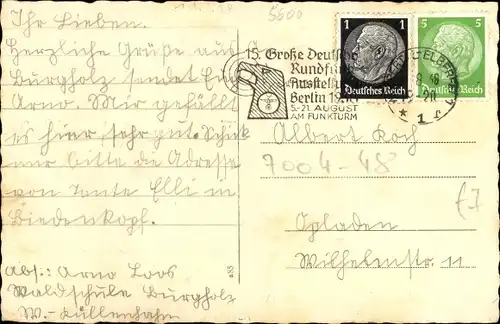 Ihr Lieben.
Herzliche Grüße aus
Burgholz sendet Euch
Arno. Mir gefällt
es hier sehr gut. Schick
mir bitte die Adresse
von Tante Elli in
Biedenkopf.
abs: Arno Loos
Waldschule Burgholz
W.-Küllenhahn
5600
15. Große Deutsche
Rundfunk
Ausstell
Berlin
5.-21. AUGUST
AM FUNKTURM
1 1
Deutsches Reich
5 5
Deutsches Reich
ELBERF
* 1 r
Albert Koch
7004-48
Opladen
Wilhelmstr. 11
a55